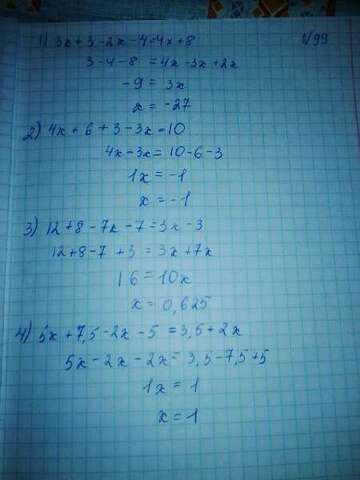 1) 3x+3-2x-4=4x+8
1/99
3-4-8=4x-3x+2x
-9=3x
x=-27
2) 4x+6+3-3x=10
4x-3x=10-6-3
1x=-1
x=-1
3) 12+8-7x-7=3x-3
12+8-7+3=3x+7x
16=10x
x=0,625
4) 5x+7,5-2x-5=3,5+2x
5x-2x-2x=3,5-7,5+5
1x=1
x=1